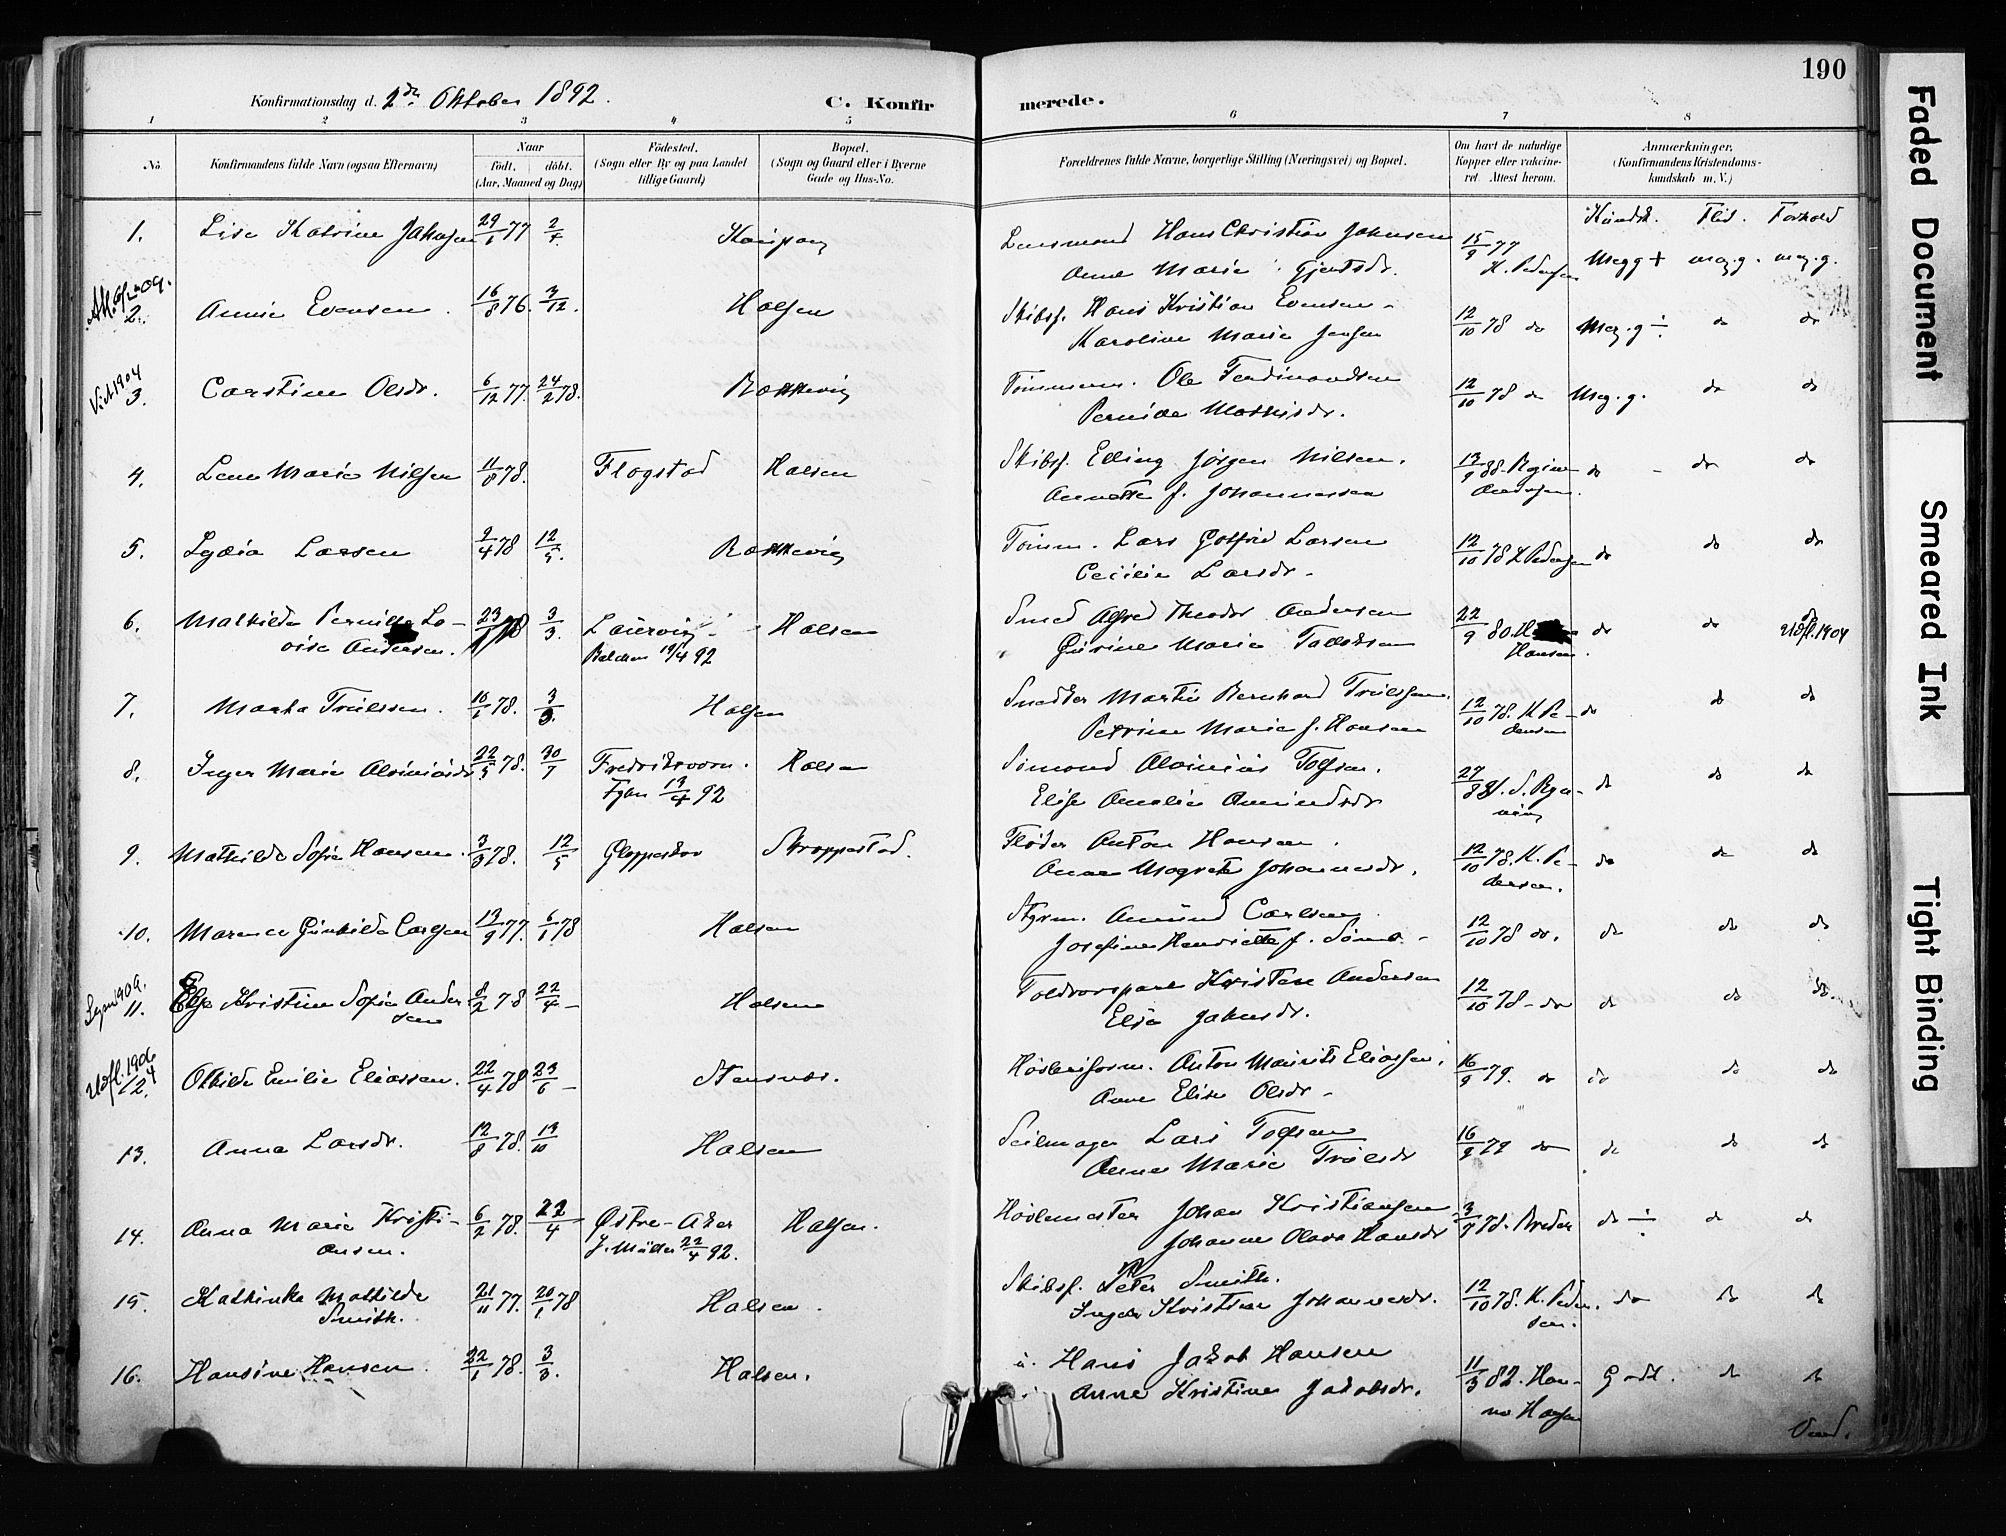 190
Konfirmationsdag d. 2den Oktober 1892.
C. Konfirmerede.
1 2 3 4 5 6 7 8
No. Konfirmandens fulde Navn (ogsaa Efternavn) Naar født, döbt. (Aar, Maaned og Dag) Födested. (Sogn eller By og paa Landet tillige Gaard) Bopæl. (Sogn og Gaard eller i Byerne Gade og Hus-No. Forældrenes fulde Navne, borgerlige Stilling (Næringsvei) og Bopæl. Om havt de naturlige Kopper eller vakcineret. Attest herom. Anmærkninger. (Konfirmandens Kristendomskundskab m. V.)
Kundsk. Flid. Forhold
1. Lise Katrine Jakobsen 29/1 77 2/4 Kaupang Lensmand Hans Christian Jakobsen 15/9 77 Megg + meg.g. meg.g.
Anne Marie Gjertsdr. K. Pedersen
2. Annie Evensen. 16/8 76. 3/12. Halsen Skibsf. Hans Kristian Evensen 12/10 78 do Meg.g ÷ do do
Karoline Marie Jensen
Vid 1904
3. Carstine Olsdr. 6/12 77. 24/2 78. Rækkevig Tømmerm. Ole Ferdinandsen 12/10 78 do Meg.g. do do
Pernille Mathisdr.
4. Lene Marie Nilsen 11/8 78. Flogstad Halsen Skibsf. Elling Jørgen Nilsen. 13/9 88. Regine do - do do
Annette f. Johannessen Andersen.
5. Lydia Larsen 9/4 78 12/5. Rækkevig Tømm. Lars Gotfred Larsen 12/10 78 K Pedersen do do do
Cecilie Larsdr.
6. Mathilde Pernille Lo- 23/1 78 3/3. Laurvig Halsen Smed Alfred Theodor Andersen 22/9 80. H do do do
oise Andersen. Balchen 19/4 92 Gurine Marie Tallaksen Hansen. Udfl. 1904
7. Marta Trulssen. 16/1 78. 3/3. Halsen Snedker Martin Bernhard Trulssen. 12/10 78. K Pe- do do do
Petrine Marie f. Hansen dersen
8. Inger Marie Alvinusdr 22/5 78. 30/7 Fredriksværn. Halsen Sømand Alvinius Tollfsen. 27/8 do do do
13/4 92 Elise Amalie Amundsdr
9. Mathilde Sofie Hansen. 3/3 78. 12/5 Gloppeskov Skroppestad. Fløder Anton Hansen. 12/10 78. K. Pe- do do do
Anne Magrete Johannesdr. dersen.
10. Maren Gunhilda Carlsen 13/9 77. 6/1 78 Halsen Styrm. Amund Carlsen 12/10 78 do. do do do
Josefine Henriette f.
1909.
11. Else Kristine Sofie Ander- 8/2 78 22/4 - Halsen Toldrorskarl Kristen Andersen 12/10 78 - do do do do
sen Elise Jakobsdr.
Udfl. 1906
12. Othilde Emilie Eliassen. 22/4 78 23/6 - Stensnæs. Anton Maurits Eliassen 16/9 79. do do do do
Anne Elise Olsdr -
13. Anna Larsdr. 12/8 78. 13/10 Halsen Seilmager Lars Tollfsen 16/9 79 do do do do
Anne Marie Trulsdr
14. Anna Marie Kristi- 6/2 78. 22/4 Østre-Aker Halsen. Høvlemester Johan Kristiansen 3/7 78. do ÷ do do
ansen. J. Müller 22/4 92. Johanne Olava Hansdr
15. Kathinka Mathilde 21/11 77. 20/1 78 Halsen. Skibsf. Peter Smith. 12/10 78. K. Peder- do do do
Smith. Inger Kristine Johannesdr. sen.
16. Hansine Hansen. 22/1 78. 3/3. Halsen. u. Hans Jakob Hansen 11/3 82. Han- Godt. do do
Anne Kristine Jakobsdr. na Hansen
Vend.
Faded Document
Smeared Ink
Tight Binding